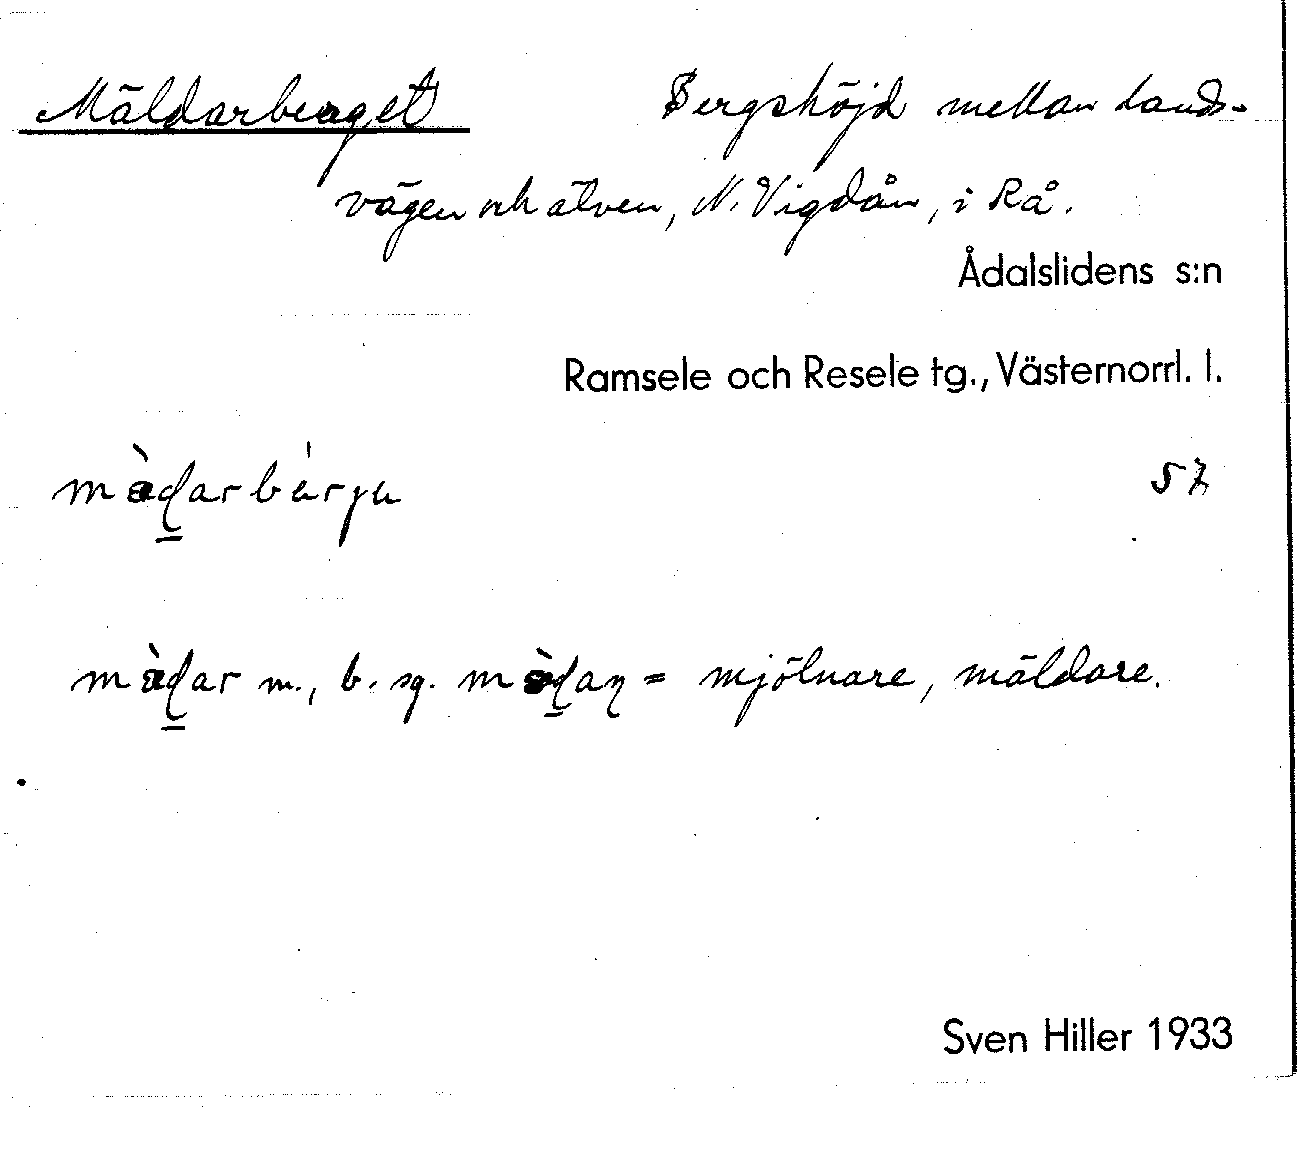 Mäldarberget Bergshöjd mellan lands-
vägen och älven, N. Vigdån, i Rå.
Ådalslidens s:n
Ramsele och Resele tg., Västernorrl. l.
57
m., b. sg. = mjölnare, mäldare.
Sven Hiller 1933